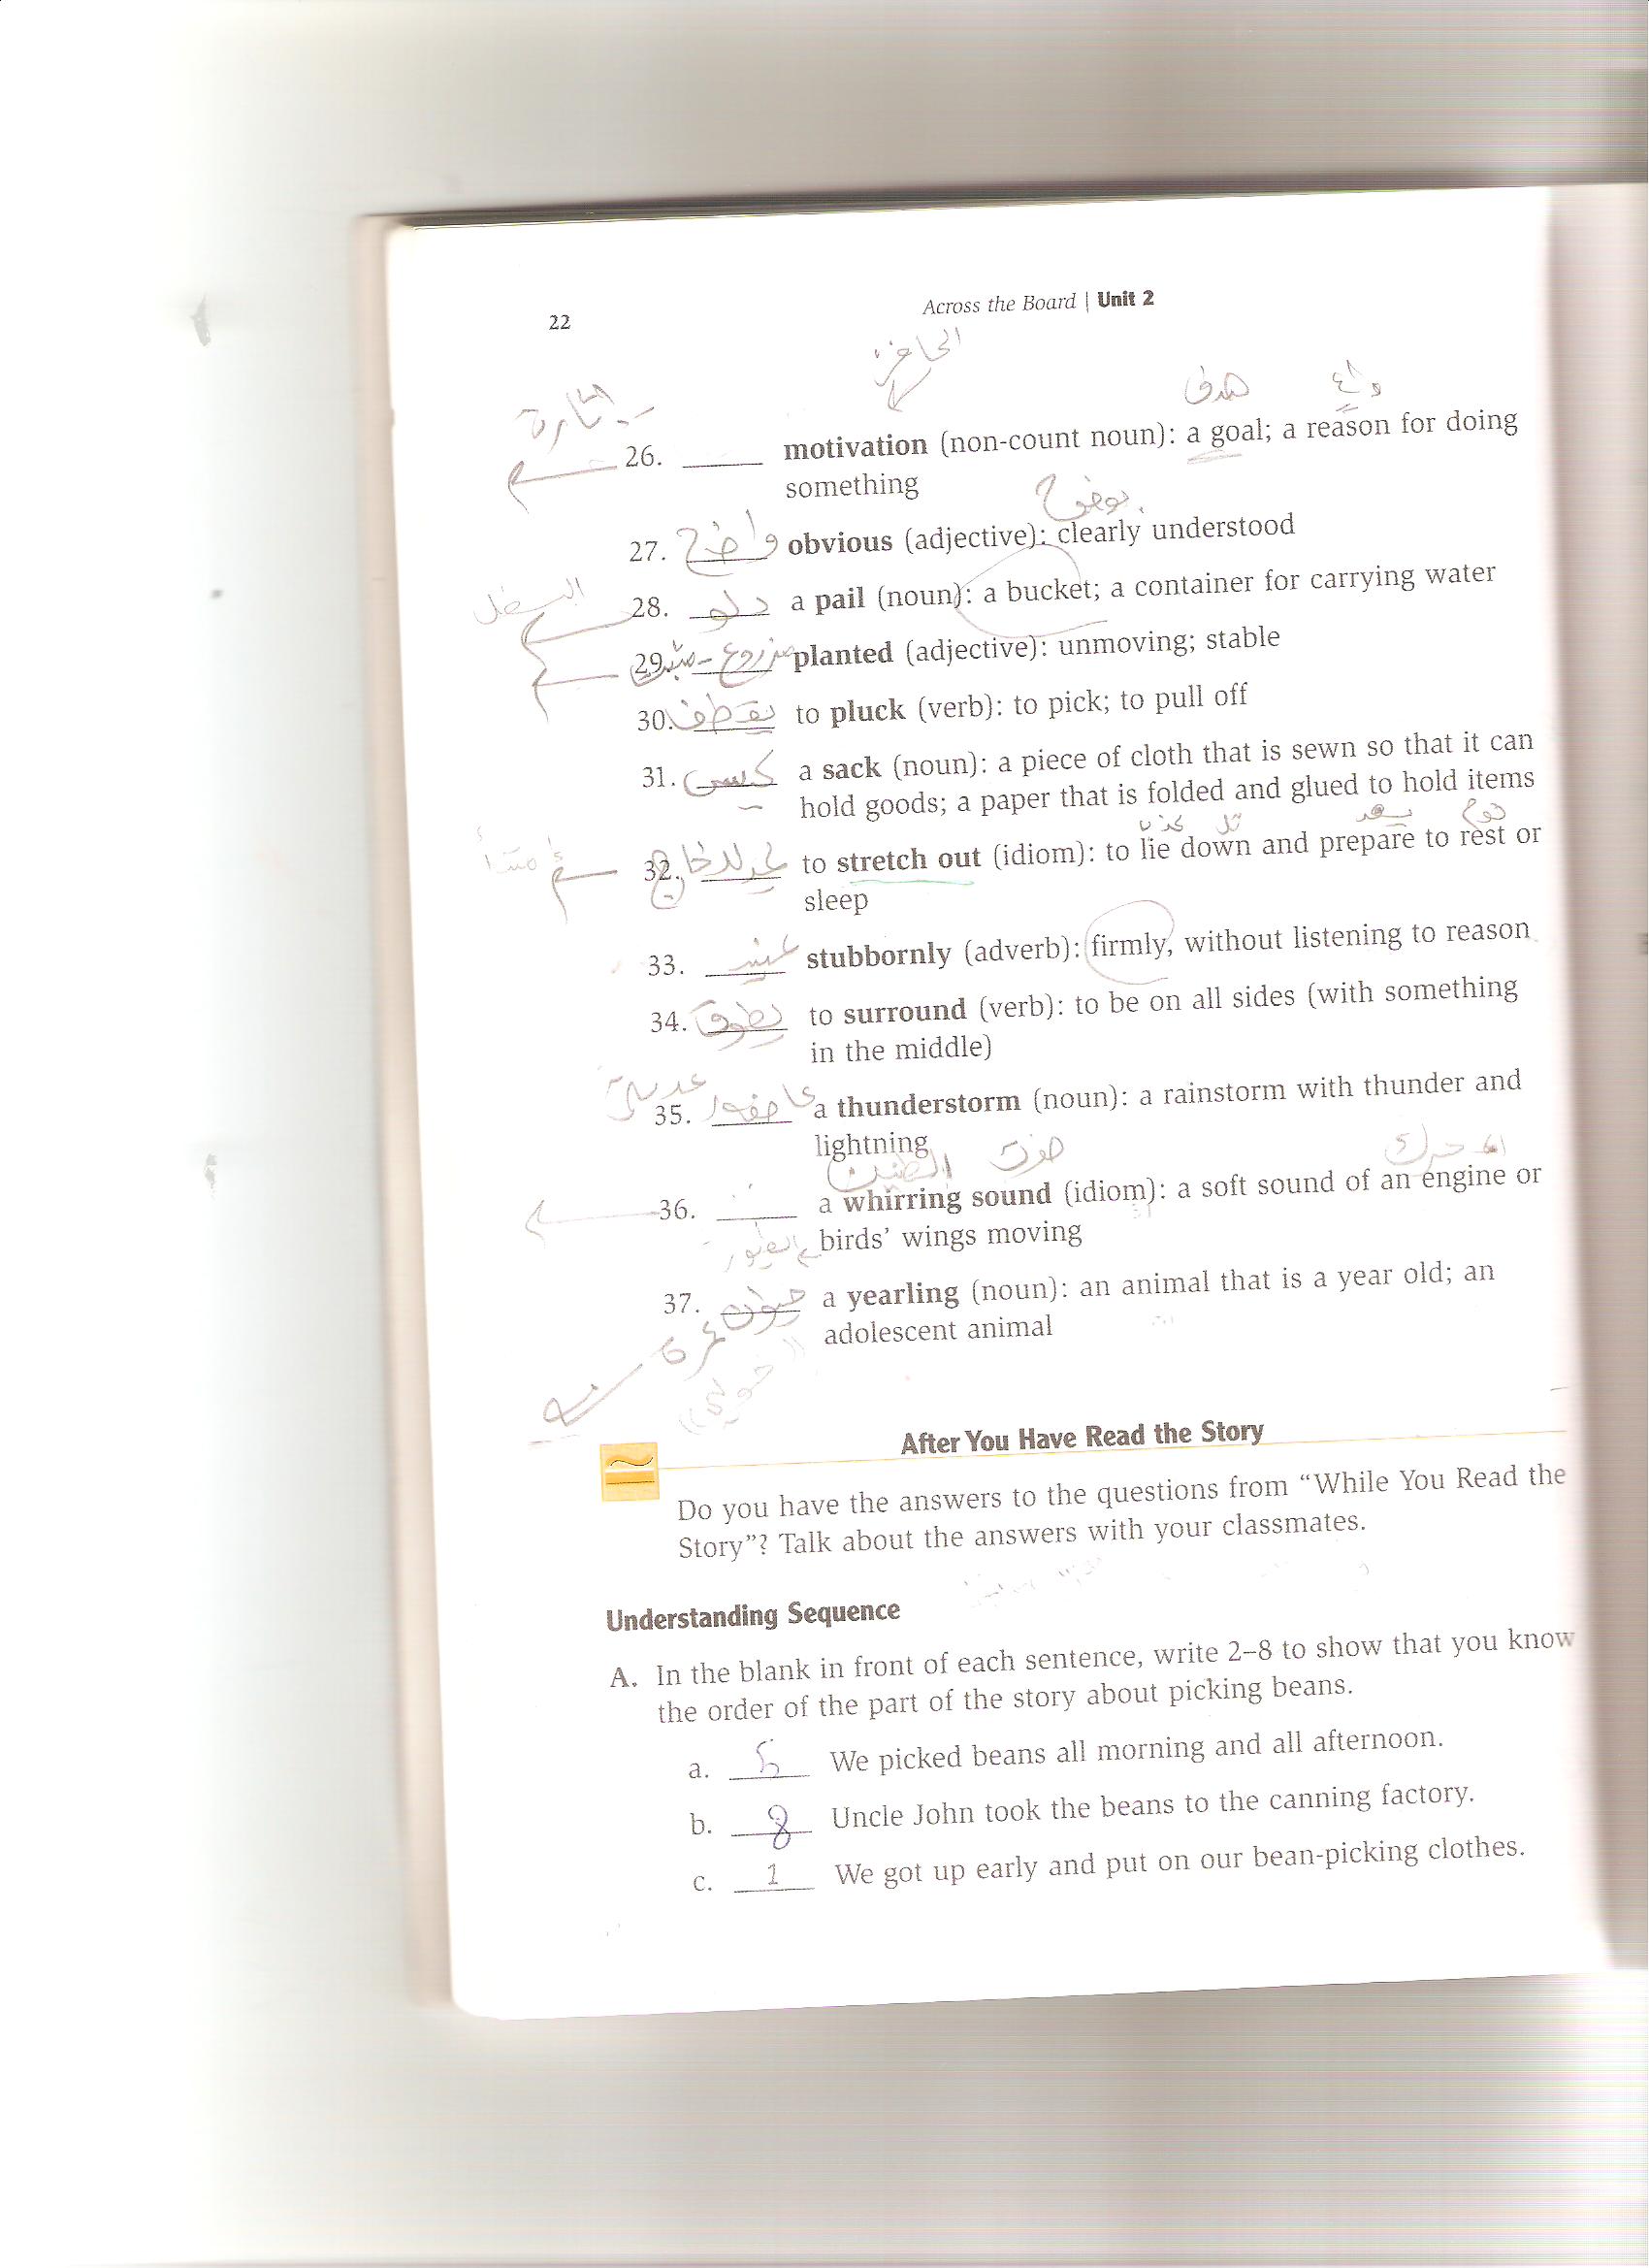 22
Across the Board | Unit 2
الحافز
هدف
إثارة
26. _____ motivation (non-count noun): a goal; a reason for doing
something
بوضوح
27. واضح obvious (adjective): clearly understood
28. دلو a pail (noun): a bucket; a container for carrying water
29. مزروع planted (adjective): unmoving; stable
30. يقطف to pluck (verb): to pick; to pull off
31. كيس a sack (noun): a piece of cloth that is sewn so that it can
hold goods; a paper that is folded and glued to hold items
32. to stretch out (idiom): to lie down and prepare to rest or
sleep
33. عنيد stubbornly (adverb): firmly, without listening to reason
34. يطوق to surround (verb): to be on all sides (with something
in the middle)
35. a thunderstorm (noun): a rainstorm with thunder and
lightning
الطنين صوت المحرك
36. _____ a whirring sound (idiom): a soft sound of an engine or
الطيور birds’ wings moving
37. حيوان a yearling (noun): an animal that is a year old; an
عمرة adolescent animal
سنه
After You Have Read the Story
Do you have the answers to the questions from “While You Read the
Story”? Talk about the answers with your classmates.
Understanding Sequence
A. In the blank in front of each sentence, write 2–8 to show that you know
the order of the part of the story about picking beans.
a. 5 We picked beans all morning and all afternoon.
b. 8 Uncle John took the beans to the canning factory.
c. 1 We got up early and put on our bean-picking clothes.